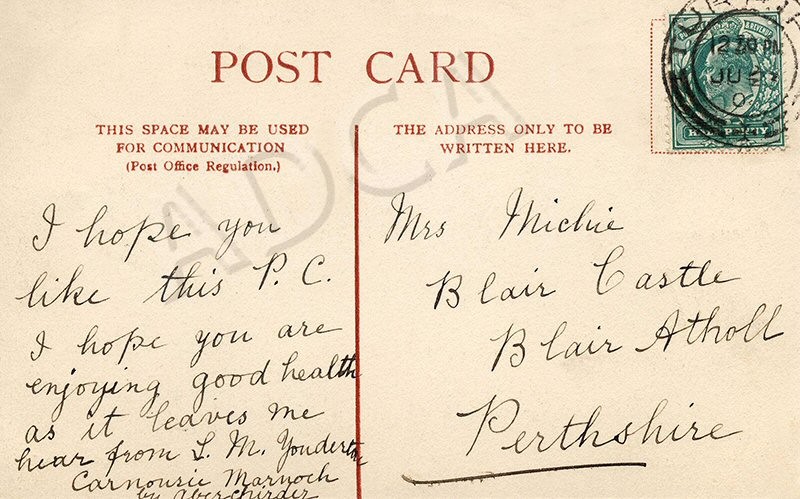 POST CARD
THIS SPACE MAY BE USED
FOR COMMUNICATION
(Post Office Regulation.)
THE ADDRESS ONLY TO BE
WRITTEN HERE.
12 30 PM
JU
HALFPENNY
AADCA
I hope you
like this P.C.
I hope you are
enjoying good health
as it leaves me
hear from L. M.
Carnousie Marnoch
by Aberchirder
Mrs Michie
Blair Castle
Blair Atholl
Perthshire